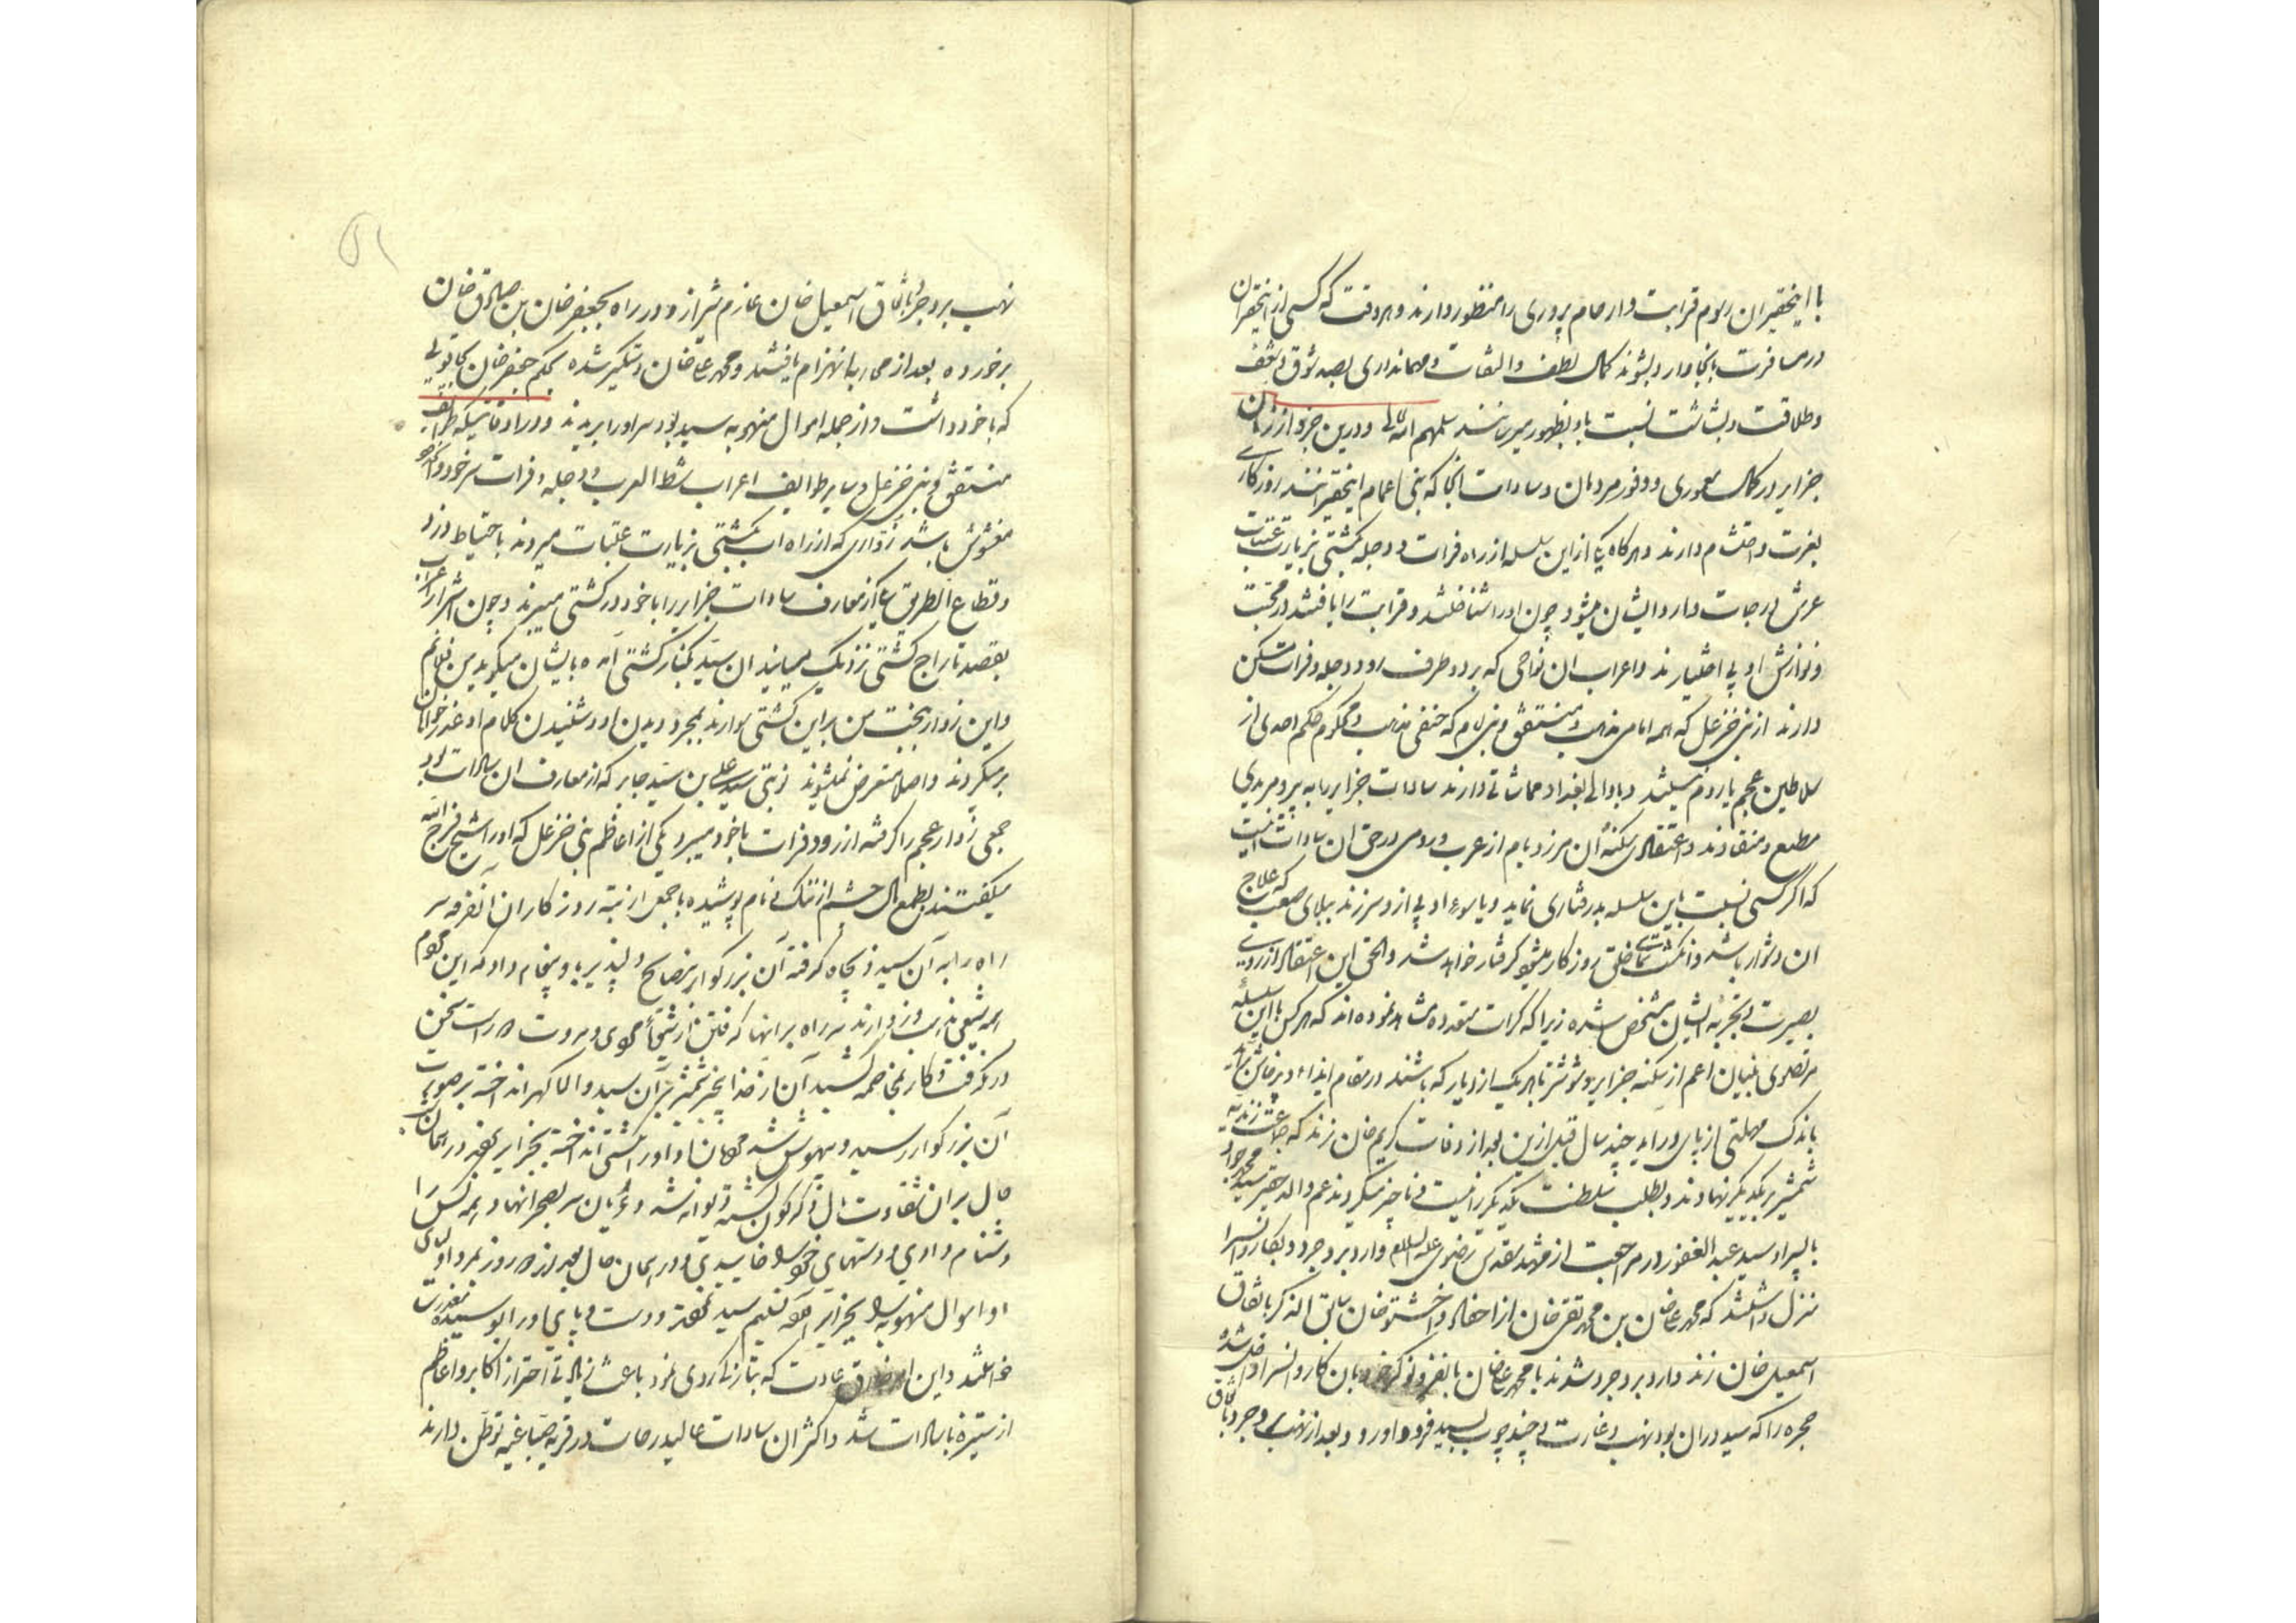 با اینحقیران رسوم قرابت و ارحام پروری را منظور دارند و هر وقت که کسی از اینحقیران
در مسافرت بانجا وارد بشوند کمال لطف و التفات و مهمانداری بصد شوق و شعف
و طلاقت و بشاشت نسبت باو بظهور میرسانند سلمهم الله تعالی و درین جزو از زمان
جزایر در کمال معموری و وفور مردمان و سادات انجا که بنی اعمام اینحقیرانند روزکاری
بعزت و احتشام دارند و هرکاه یکی از این سلسله از راه فرات و دجله بکشتی بزیارت عتبات
عرش درجات وارد ایشان میشود چون اورا شناختند و قرابت را یافتند در محبت
و نوازش او بی اختیارند و اعراب ان نواحی که بر دو طرف رود دجله و فرات مسکن
دارند از بنی خزعل که همه امامی مذهب و منتفق و بنی لام که حنفی مذهب و محکوم حکم احدی از
سلاطین عجم یا روم نیستند و با والی بغداد مماشاتی دارند سادات جزایر را به پیر و مریدی
مطیع و منقادند و اعتقاد سکنهٔ ان مرز و بام از عرب و رومی در حق ان سادات اینست
که اکر کسی نسبت باین سلسله بدرفتاری نماید و یا سوء ادبی از و سر زند ببلای صعب که علاج
ان دشوار باشد و انکشت نمای خلق روزکار میشود کرفتار خواهد شد و الحق این اعتقاد از روی
بصیرت و تجربه ایشان مشخص شده زیرا که کرات متعدده مشاهده نموده اند که هر کس با این سلسلهٔ
مرتضوی بنیان اعم از سکنه جزایر و شوشتر یا هر یک از دیار که باشند در مقام ایذاء و پرخاش برآید
باندک مهلتی از پای در آید چند سال قبل ازین بعد از وفات کریم خان زند که جماعت زندیه
شمشیر بر یکدیکر نهادند و بطلب سلطنت یکدیکر را نیست و ناچیز میکردند عم والد حقیر سید محمد جواد
با پسر او سید عبد الغفور در مراجعت از مشهد مقدس رضوی علیه السلام وارد بروجرد و بکاروانسرا
منزل داشتند که محمد علیخان بن محمد تقی خان از احفاد واخشتو خان سابق الذکر باتفاق
اسمعیل خان زند وارد بروجرد شدند با محمد علیخان با نفر و نوکر خود بان کاروانسرا داخل شده
حجره را که سید در ان بود نهب و غارت و چند چوب بسید فرود آورد و بعد از نهب بروجرد باتفاق
نهب بروجرد باتفاق اسمعیل خان عازم شیراز و در راه بجعفر خان بن صادق خان
برخورده بعد از محاربه انهزام یافتند و محمد علیخان دستکیر شده بحکم جعفر خان
که با خود داشت و از جمله اموال منهوبه سید بود سر اورا بریدند و در اوقاتیکه طوایف
منتفق و بنی خزعل و سایر طوایف اعراب شط العرب و دجله و فرات سر خود و راه
مغشوش باشد زواری که از راه اب بکشتی بزیارت عتبات میروند باحتیاط دزد
و قطاع الطریق یکی از معارف سادات جزایر را با خود در کشتی میبرند و چون اشرار اعراب
بقصد تاراج کشتی نزدیک میایند ان سید بکنار کشتی آمده بایشان میکوید من فلانم
و این زوار بتخت من بر این کشتی سوارند بمجرد دیدن او و شنیدن کلام او عذر خواهان
برمیکردند و اصلا متعرض نمیشوند نوبتی سید علی بن سید جابر که از معارف ان سادات بود
جمعی زوار عجم را کرفته از رود فرات با خود میبرد یکی از اعاظم بنی خزعل که اورا شیخ فرج الله
میکفتند بطمع مال چشم از ننک و نام پوشیده با جمعی از تبه روزکاران آنفرقه سر
راه را به آن سید ذیجاه کرفته آن بزرکوار بنصایح دلپذیر باو پیغام داد که این مردم
همه شیعی مذهب و زوارند سر راه بر انها کرفتن از شیوهٔ جوانمردی و مروت دور است سخن
در نکرفت و کار بمخاصمه کشید
آن بزرکوار رسید و بیهوش شد
حال بر ان شقاوت مال دکرکون کشته دیوانه شد و عریان سر بصحرا نهاد و همه کس را
دشنام دادی و دستهای خود را خاییدی و در همان حال بعد از ده روز بمرد اولاد
او اموال منهوبه را بجزایر آورده تسلیم سید نمودند و دست و پای اورا بوسیده معذرت
خواستند و این امر خارق عادت که بتازکی روی نمود باعث زیادتی احتراز اکابر و اعاظم
از ستیزه با سادات شد و اکثر ان سادات عالیدرجات در قریه صباغیه توطن دارند